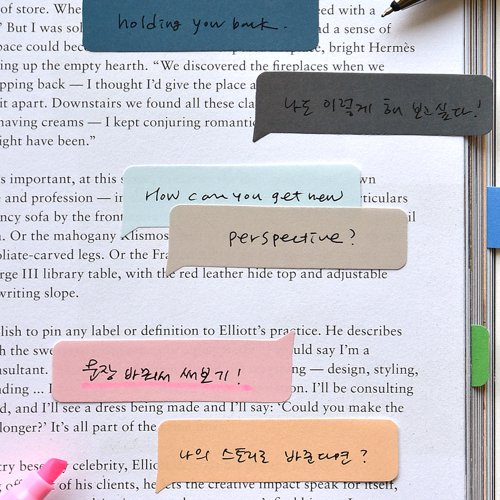 of store. When
with a
holding you back.
But I was sol
a sense of
could
bright Hermès
up the empty hearth. “We discovered the fireplaces when we
back — I thought I'd give the place a
it apart. Downstairs we found all these
나도 이렇게 해 보고싶다!
creams — I kept conjuring
have been.”
important, at this
and profession — in
How can you get new
sofa by the front
perspective?
Or the mahogany Klismos
legs. Or the
III library table, with the red leather hide top and adjustable
writing slope.
to pin any label or definition to Elliott's practice. He describes
the
say I'm a
— design, styling,
문장 바꿔서 써보기!
... I
I'll be consulting
and I'll see a dress being made and I'll say: ‘Could you make the
longer?’ It's all part of the
나의 스토리로 바꾼다면?
celebrity,
of his clients, he lets the creative impact speak for itself,